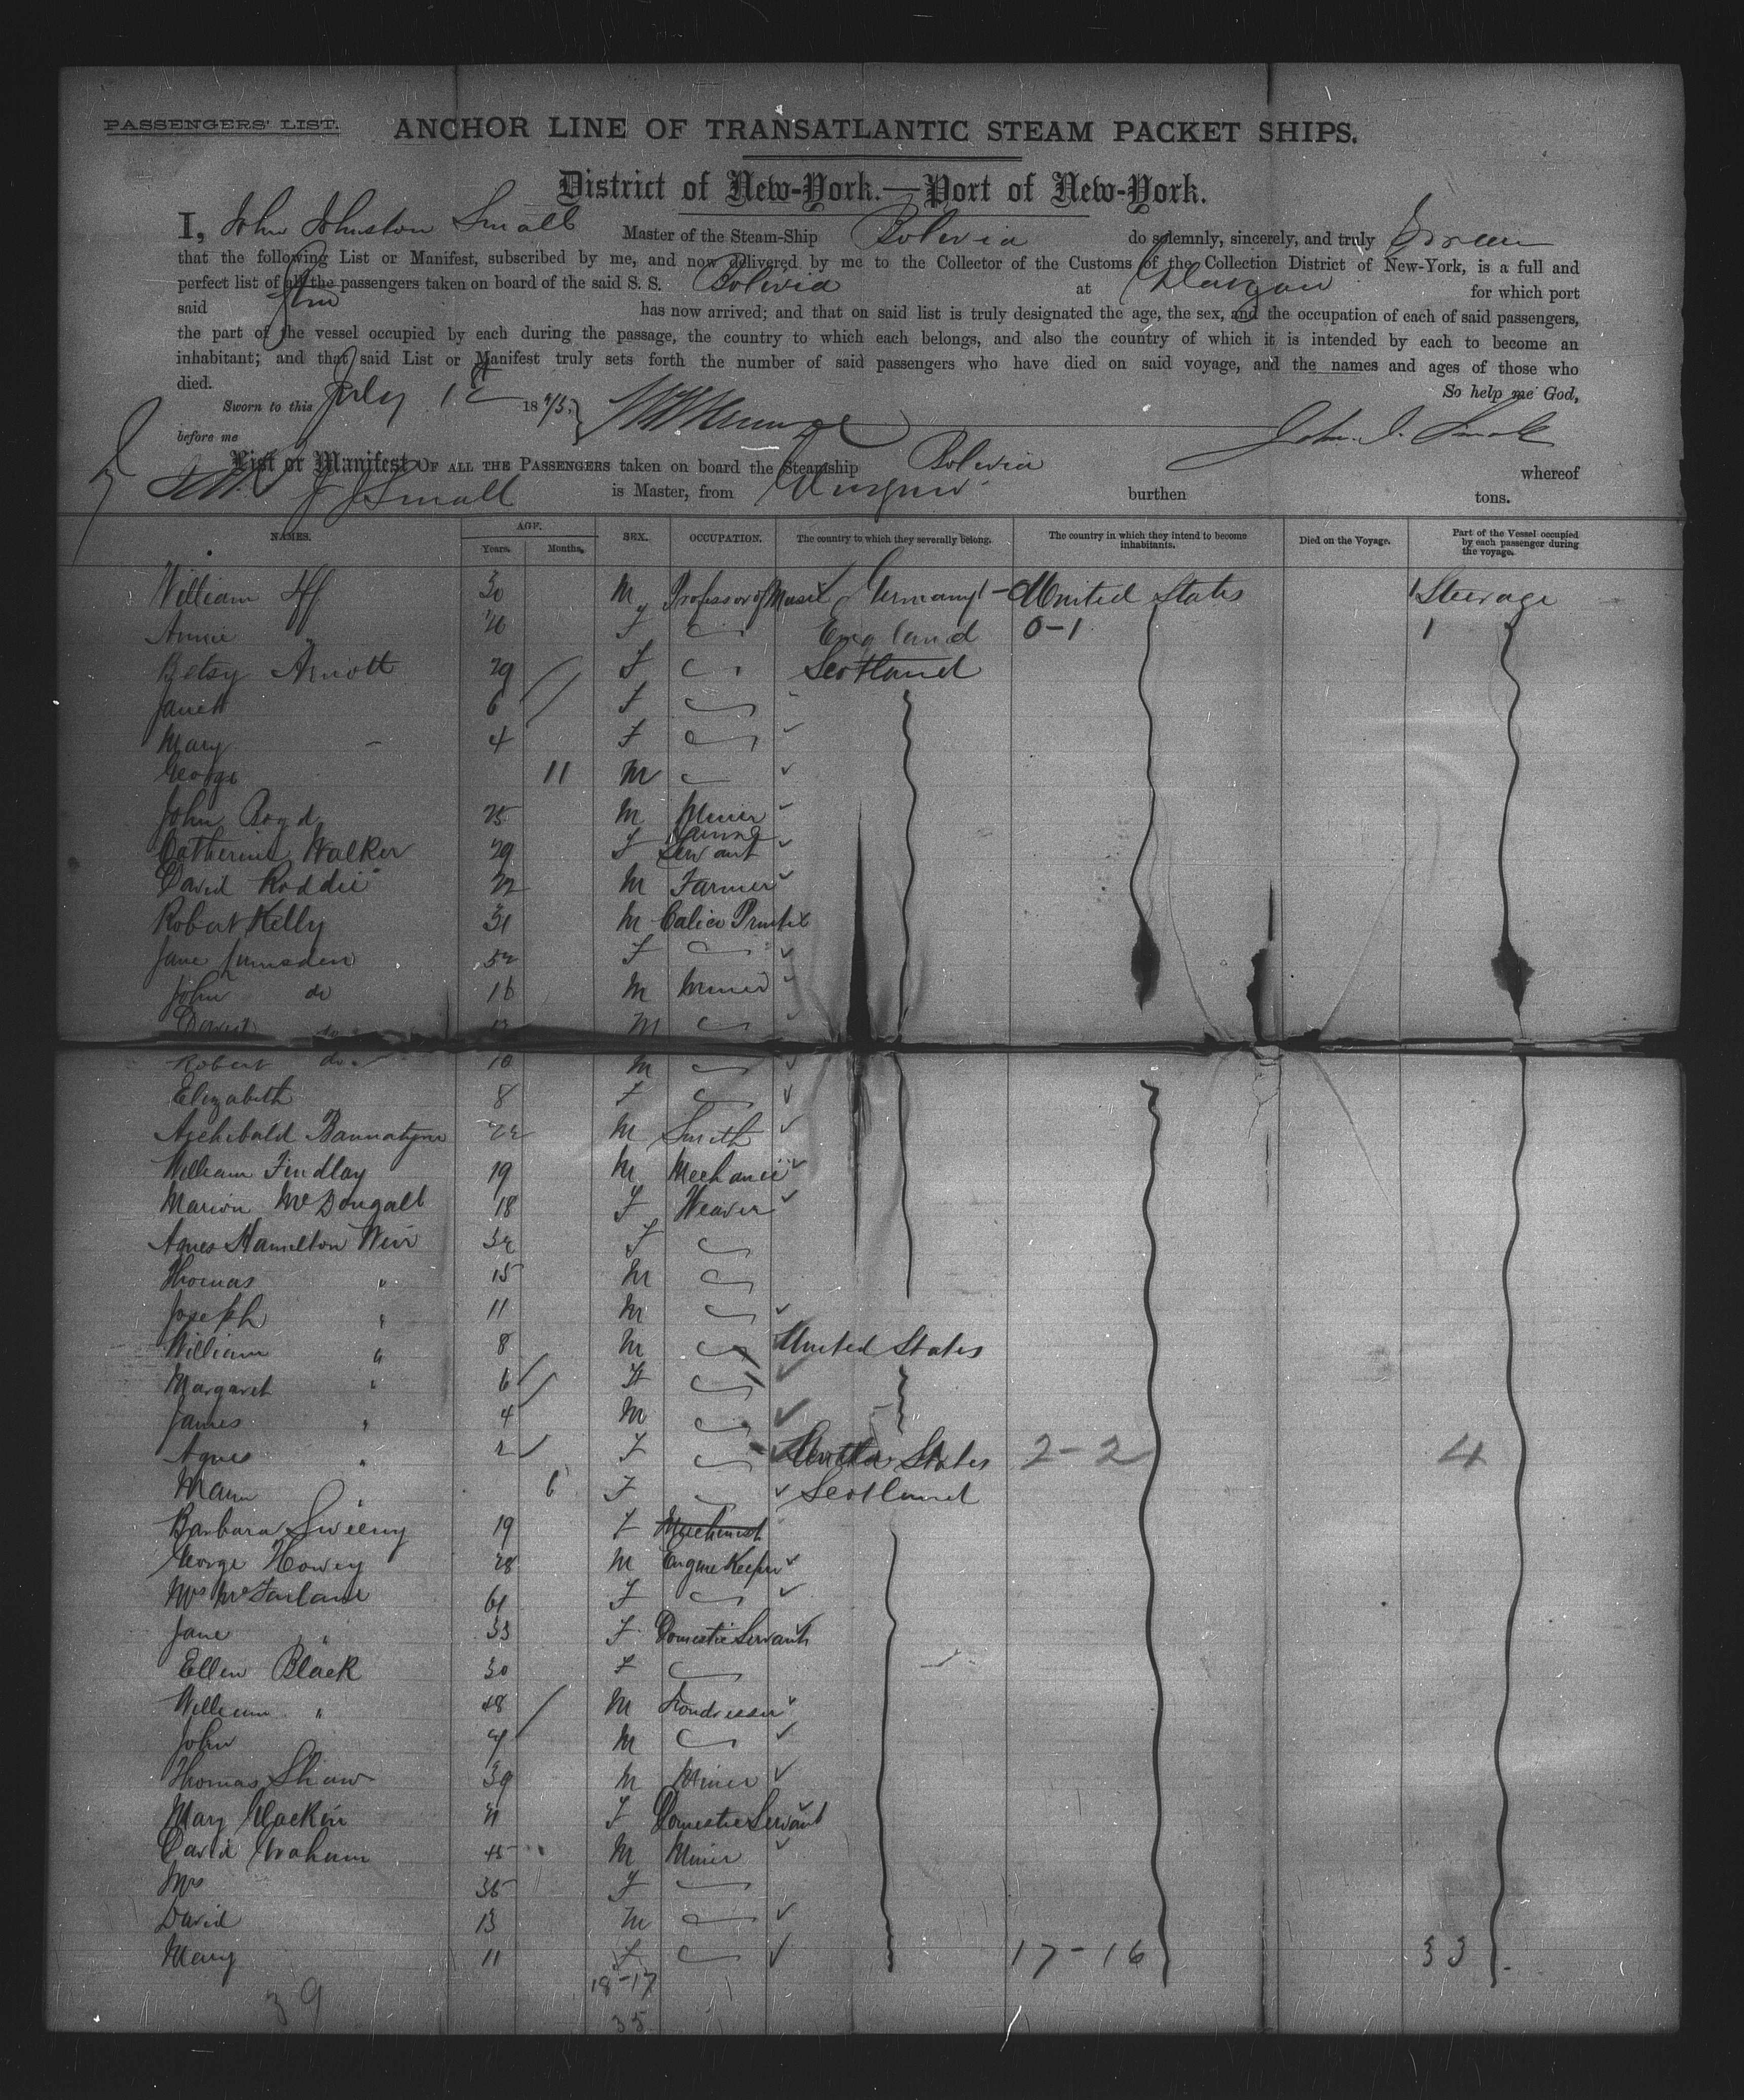 PASSENGERS' LIST.
ANCHOR LINE OF TRANSATLANTIC STEAM PACKET SHIPS.
District of New-York.—Port of New-York.
I, John Johnston Small Master of the Steam-Ship Bolivia do solemnly, sincerely, and truly Swear
that the following List or Manifest, subscribed by me, and now delivered by me to the Collector of the Customs of the Collection District of New-York, is a full and
perfect list of all the passengers taken on board of the said S. S. Bolivia at Glasgow for which port
said has now arrived; and that on said list is truly designated the age, the sex, and the occupation of each of said passengers,
the part of the vessel occupied by each during the passage, the country to which each belongs, and also the country of which it is intended by each to become an
inhabitant; and that said List or Manifest truly sets forth the number of said passengers who have died on said voyage, and the names and ages of those who
died. So help me God,
Sworn to this July 18
before me John J. Small
List or Manifest OF ALL THE PASSENGERS taken on board the Steamship Bolivia whereof
J J Small is Master, from Glasgow burthen tons.
NAMES. AGE. Years. Months. SEX. OCCUPATION. The country to which they severally belong. The country in which they intend to become inhabitants. Died on the Voyage. Part of the Vessel occupied by each passenger during the voyage.
William Iff 30 M Professor of Music Germany 1 - United States 1 Steerage
Annie " F England 0-1 1
Betsy Arnott 29 F Scotland
Janet 6 F
Mary 4 F
George 11 M
John Boyd 25 M Miner
Catherine Walker 29 F Servant
David Roddie 22 M Farmer
Robert Kelly 31 M Calico Printer
Jane Lumsden 52 F
John do 16 M
David do M
Robert do 10 M
Elizabeth 8 F
Archibald Bannatyne 22 M Smith
William Findlay 19 M Mechanic
Marion McDougall 18 F Weaver
Agnes Hamilton Weir 32 F
Thomas " 15 M
Joseph " 11 M
William " 8 M United States
Margaret " 6 F
James " 4 M
Agnes " 2 F States 2-2 4
" 6 F Scotland
Barbara Sweeny 19 F
George Howey 28 M Engine Keeper
Mrs McFarlane 61 F
Jane " 33 F Domestic Servant
Ellen Black 30 F
William " 48 M
John 4 M
Thomas Shaw 39 M Miner
Mary Mackin 21 F Domestic Servant
David Graham 45 M Miner
Mrs 36 F
David 13 M
Mary 11 F 17-16 33
18-17
39
35